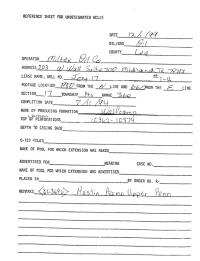 REFERENCE SHEET FOR UNDESIGNATED WELLS
DATE 12/1/94
OIL/GAS Oil
COUNTY Lea
OPERATOR Mitek Oil Co
ADDRESS 203 W Wall Suite 700 Midland, Tx 79701
LEASE NAME, WELL NO. Jay 17 #1-A
FOOTAGE LOCATION FROM THE N LINE AND 660 FROM THE E LINE
SECTION 17 TOWNSHIP RANGE 36E
COMPLETION DATE 7/1/94
NAME OF PRODUCING FORMATION Wolfcamp
TOP OF PERFORATIONS 10367-10374
DEPTH TO CASING SHOE
C-123 FILED
NAME OF POOL FOR WHICH EXTENSION WAS ASKED
ADVERTISED FOR HEARING CASE NO.
NAME OF POOL FOR WHICH EXTENSION WAS ADVERTISED
PLACED IN BY ORDER NO. R-
REMARKS Upper Penn